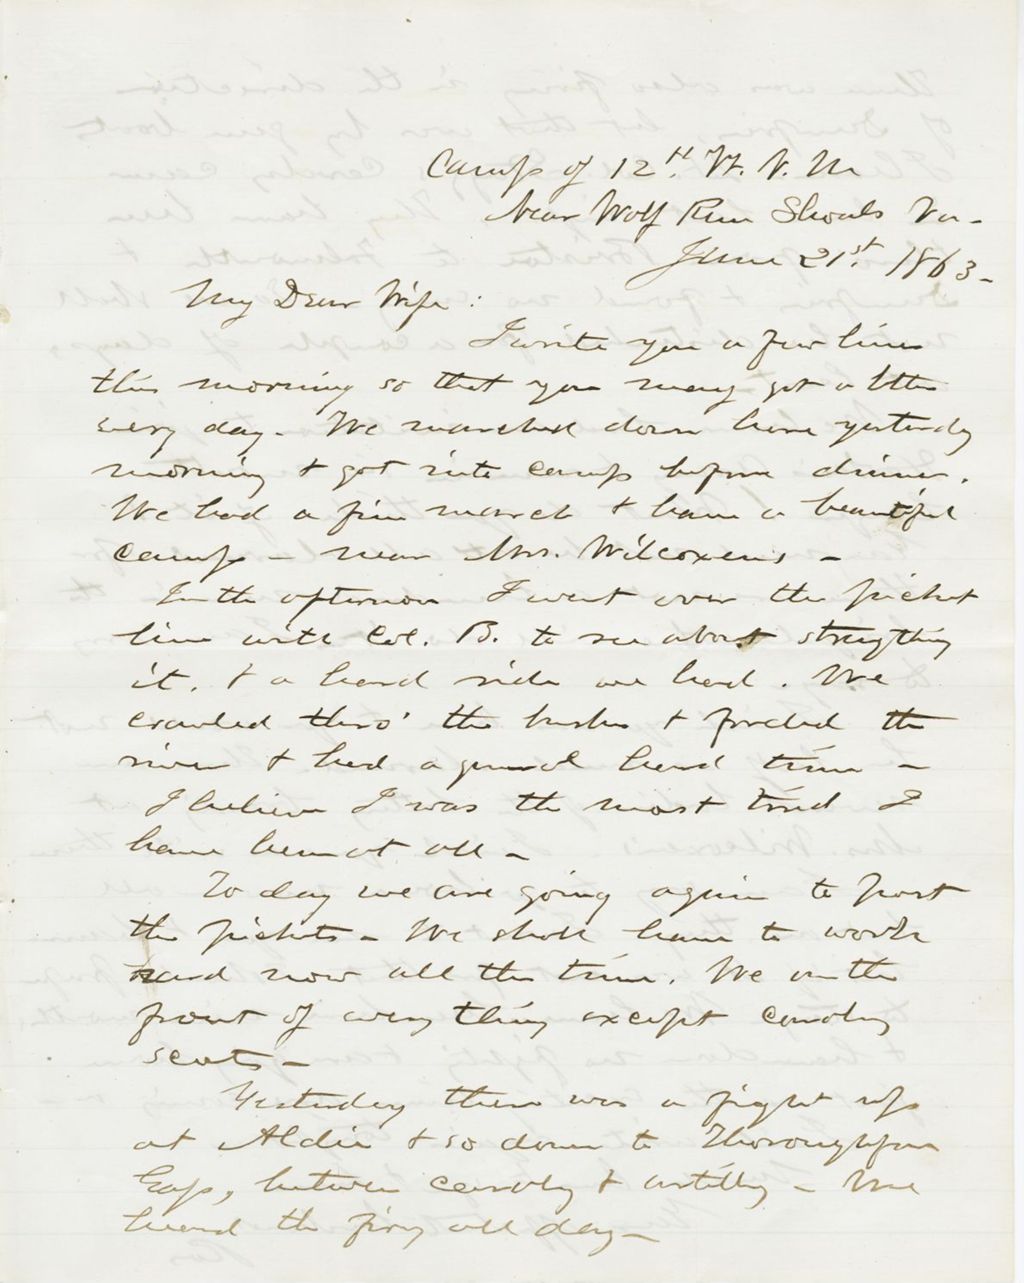 Camp of 12th. Vt. V. M
Near Wolf Run Shoals Va-
June 21st. 1863-
My Dear Wife:
I write you a few lines
this morning so that you may get a letter
every day- We marched down here yesterday
morning & got into camp before dinner.
We had a fine march & have a beautiful
camp- near Mrs. Wilcoxens-
In the afternoon I went over the picket
line with Col. B. to see about strengthing
it. & a hard ride we had. We
crawled thro' the bushes & forded the
river & had a general hard time-
I believe I was the most tired I
have been at all-
To day we are going again to post
the pickets- We shall have to work
hard now all the time. We are the
front of every thing except cavalry
scouts-
Yesterday there was a fight up
at Aldie & so down to Thoroughfare
Gap, between cavalry & artillery- We
heard the firing all day-